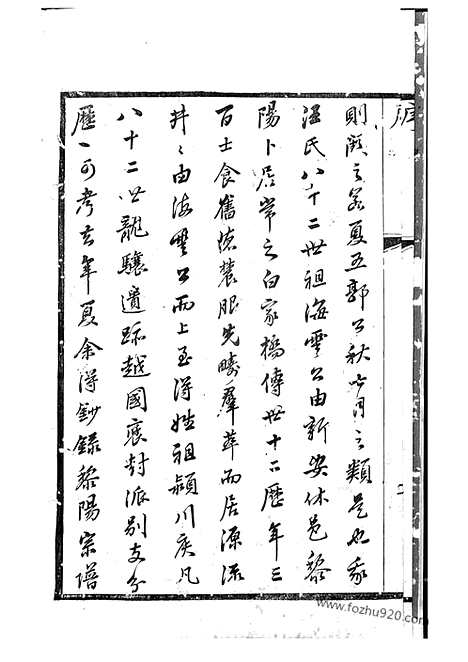 序
則闕之若夏五郭公秋七月之類是也我
汪氏八十二世祖海雲公由新安休邑黎
陽卜居常之白家橋傳世十二歷年三
百士食舊德農服先疇羣萃而居源流
井々由海雲公而上至得姓祖潁川侯凡
八十二世龍驤遺跡越國褒封派別支分
歷々可考去年夏余得鈔錄黎陽宗譜
www.fozhu920.com